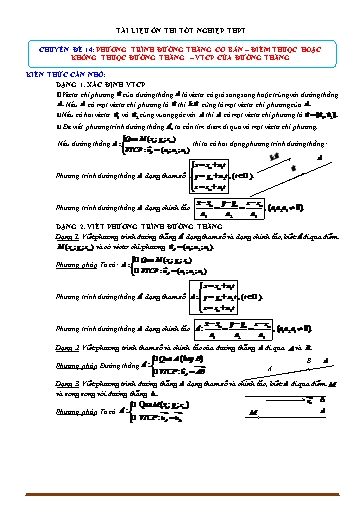 TÀI LIỆU ÔN THI TỐT NGHIỆP THPT
CHUYÊN ĐỀ 14: PHƯƠNG TRÌNH ĐƯỜNG THẲNG CƠ BẢN – ĐIỂM THUỘC HOẶC
KHÔNG THUỘC ĐƯỜNG THẲNG – VTCP CỦA ĐƯỜNG THẲNG
KIẾN THỨC CẦN NHỚ:
DẠNG 1. XÁC ĐỊNH VTCP
Véctơ chỉ phương u của đường thẳng d là véctơ có giá song song hoặc trùng với đường thẳng
d. Nếu d có một véctơ chỉ phương là u thì k.u cũng là một véctơ chỉ phương của d.
Nếu có hai véctơ n₁ và n₂ cùng vuông góc với d thì d có một véctơ chỉ phương là u = [n₁, n₂].
Để viết phương trình đường thẳng d, ta cần tìm điểm đi qua và một véctơ chỉ phương.
Nếu đường thẳng d: { Qua M(x₀; y₀; z₀) VTCP: u_d = (a₁; a₂; a₃) thì ta có hai dạng phương trình đường thẳng:
Phương trình đường thẳng d dạng tham số { x = x₀ + a₁t y = y₀ + a₂t, (t ∈ ). z = z₀ + a₃t
k.u u d
Phương trình đường thẳng d dạng chính tắc (x − x₀)/a₁ = (y − y₀)/a₂ = (z − z₀)/a₃, (a₁a₂a₃ ≠ 0).
DẠNG 2. VIẾT PHƯƠNG TRÌNH ĐƯỜNG THẲNG
Dạng 1. Viết phương trình đường thẳng d dạng tham số và dạng chính tắc, biết d đi qua điểm
M(x₀; y₀; z₀) và có véctơ chỉ phương u_d = (a₁; a₂; a₃).
Phương pháp. Ta có: d: { Qua M(x₀; y₀; z₀) VTCP: u_d = (a₁; a₂; a₃)
Phương trình đường thẳng d dạng tham số d: { x = x₀ + a₁t y = y₀ + a₂t, (t ∈ ). z = z₀ + a₃t
Phương trình đường thẳng d dạng chính tắc d: (x − x₀)/a₁ = (y − y₀)/a₂ = (z − z₀)/a₃, (a₁a₂a₃ ≠ 0).
Dạng 2. Viết phương trình tham số và chính tắc của đường thẳng d đi qua A và B.
Phương pháp. Đường thẳng d: { Qua A (hay B) VTCP: u_d = AB
A B d
Dạng 3. Viết phương trình đường thẳng d dạng tham số và chính tắc, biết d đi qua điểm M
và song song với đường thẳng Δ.
Phương pháp. Ta có d: { Qua M(x₀; y₀; z₀) VTCP: u_d = u_Δ
M d